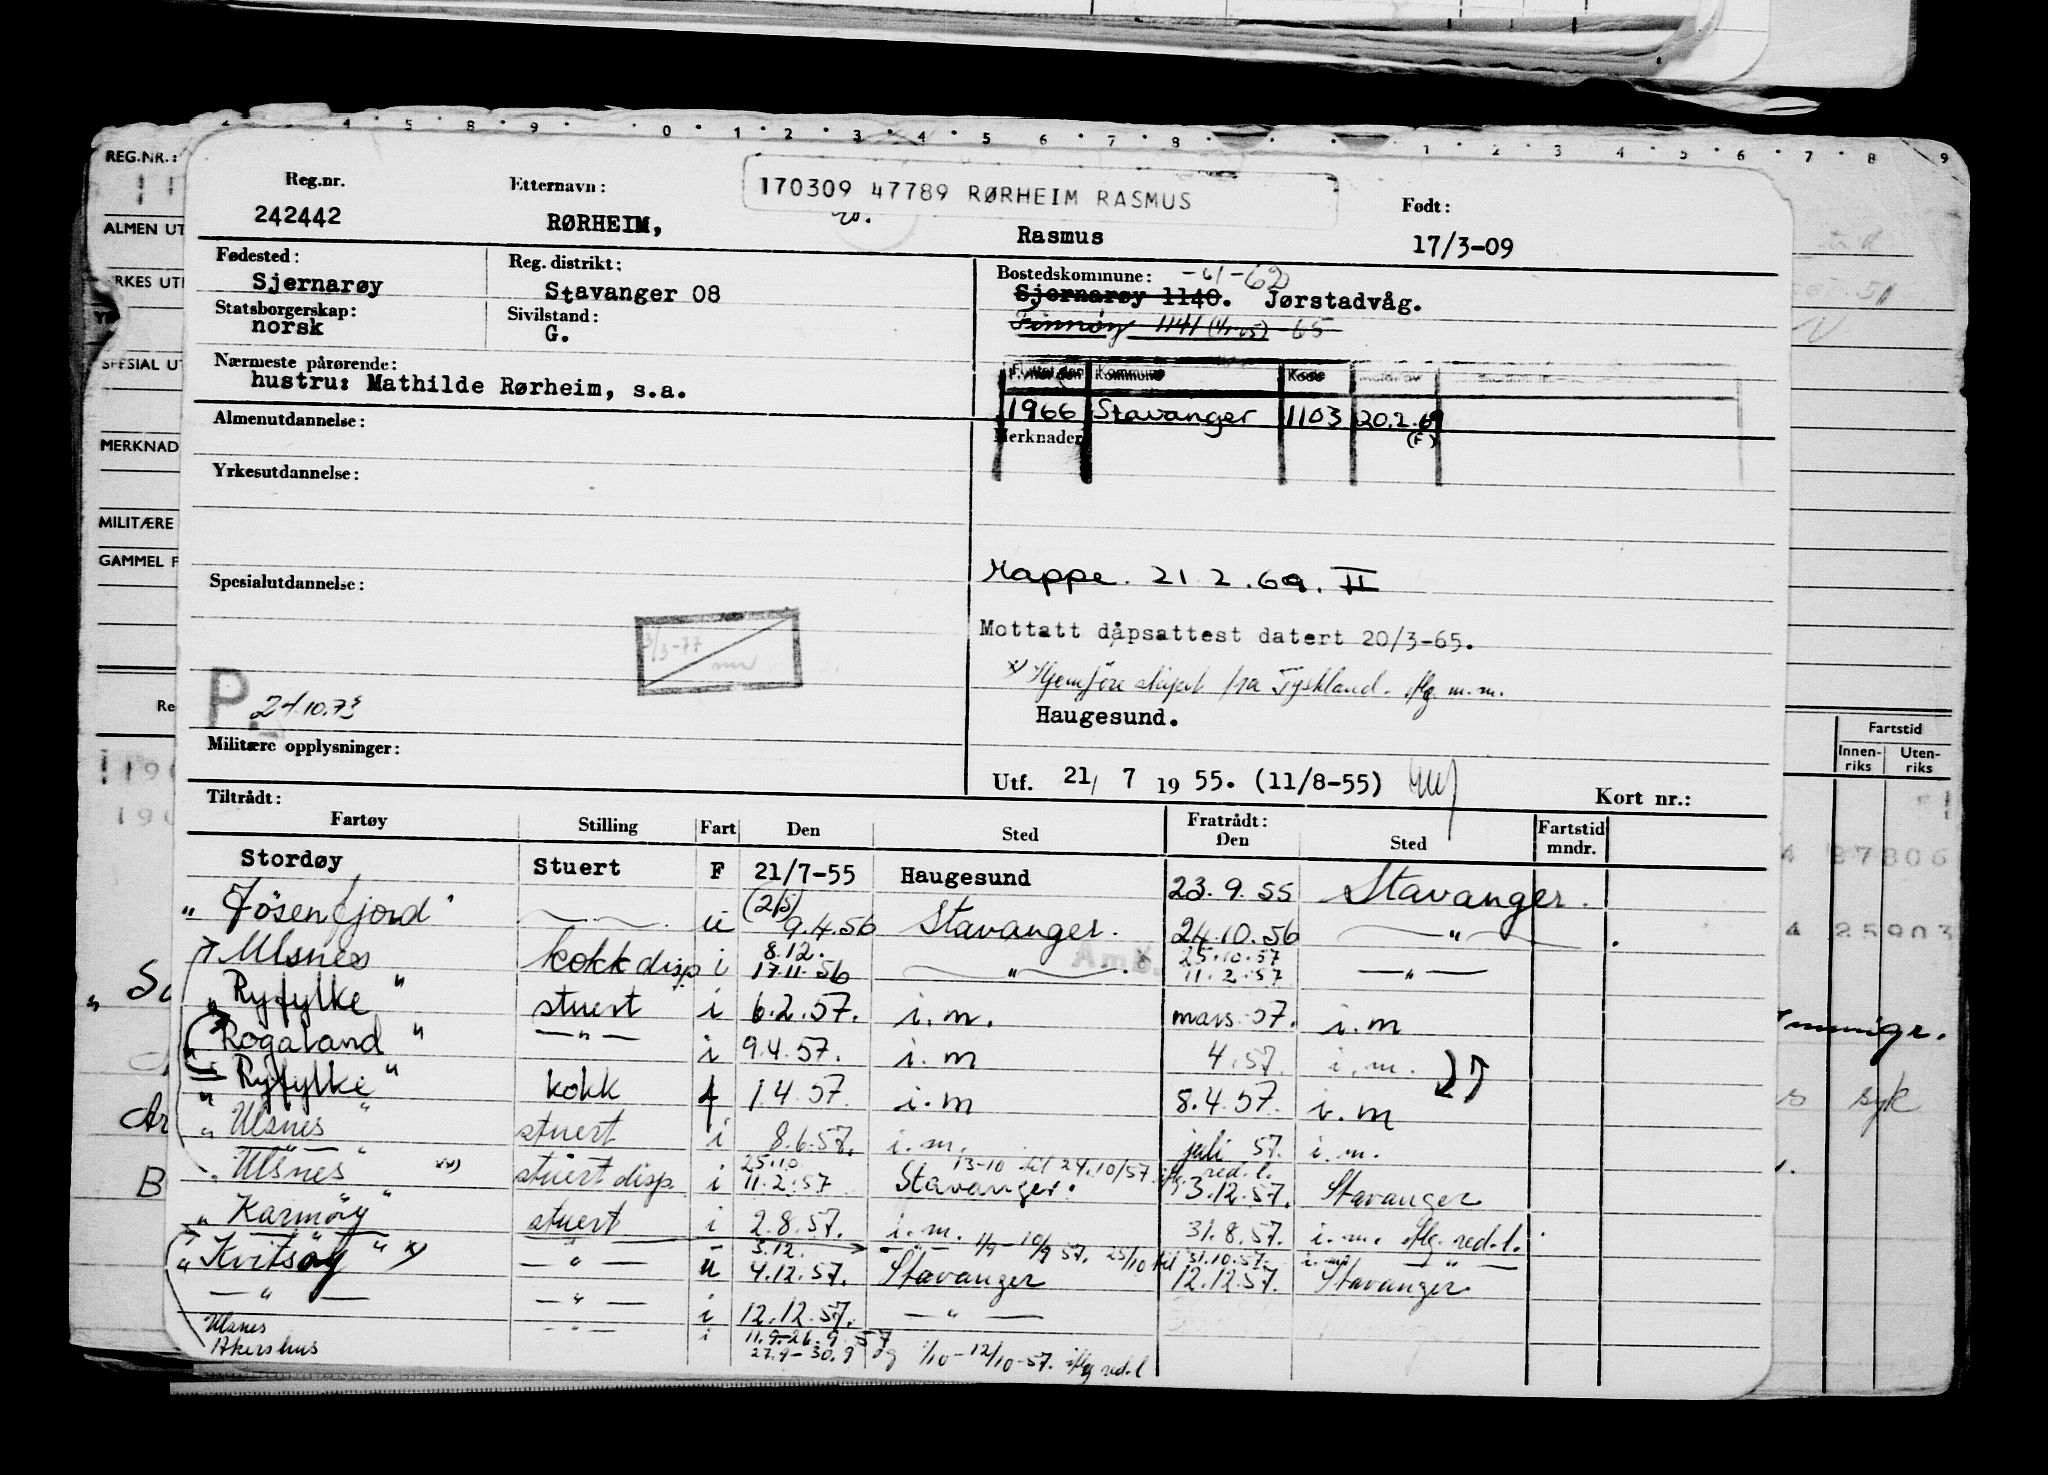 REG.NR.:
ALMEN UT
SPESIAL UT
MERKNAD
MILITÆRE
GAMMEL F
Reg.nr.
242442
Etternavn:
RØRHEIM,
170309 47789 RØRHEIM RASMUS
Rasmus
Født:
17/3-09
Fødested:
Sjernarøy
Reg. distrikt:
Stavanger 08
Bostedskommune: -61-62
Sjernarøy 1140. Jørstadvåg.
Statsborgerskap:
norsk
Sivilstand:
G.
Finnøy 1141 -65
Nærmeste pårørende:
hustru: Mathilde Rørheim, s.a.
Flyttet den Kommune Kode
1966 Stavanger 1103 20.2.69
(F)
Almenutdannelse:
Merknader
Yrkesutdannelse:
Mappe. 21.2.69. II
Spesialutdannelse:
3/3-77
Mottatt dåpsattest datert 20/3-65.
x) Hjemføre skipet fra Tyskland. flg. m.m.
Haugesund.
P. 21.10.73
Militære opplysninger:
Utf. 21/ 7 1955. (11/8-55)
Kort nr.:
Fartstid
Innen-riks Uten-riks
Tiltrådt:
Fartøy Stilling Fart Den Sted Fratrådt: Den Sted Fartstid mndr.
Stordøy Stuert F 21/7-55 Haugesund 23.9.55 Stavanger.
" Jøsenfjord" — " — u (2/5) 9.4.56 Stavanger. 24.10.56 — " —
Ulsnes kokk disp i 8.12. 17.11.56 — " — 25.10.57 11.2.57 — " —
" Ryfylke " stuert i 6.2.57. i.m. mars 57. i.m
Rogaland " — " — i 9.4.57. i.m 4.57. i.m.
" Ryfylke " kokk f 1.4.57. i.m 8.4.57. i.m
" Ulsnes " stuert i 8.6.57. i.m. juli 57. i.m.
" Ulsnes " xx) stuert disp. i 25.10 11.2.57 Stavanger. 13-10 til 24.10/57. iflg. red.l. 3.12.57. Stavanger
" Karmøy " stuert i 2.8.57. i.m. 31.8.57. i.m. iflg. red.l.
1/9-10/9 57. 25/10 til 31.10.57. i.m. — " —
" Kvitsøy " x) — " — u 3.12. 4.12.57. Stavanger 12.12.57. Stavanger.
— " — — " — i 12.12.57. — " —
Ulsnes — " — i 11.9-26.9.57
Akershus 27.9-30.9 og 1/10-12/10-57. iflg red.l